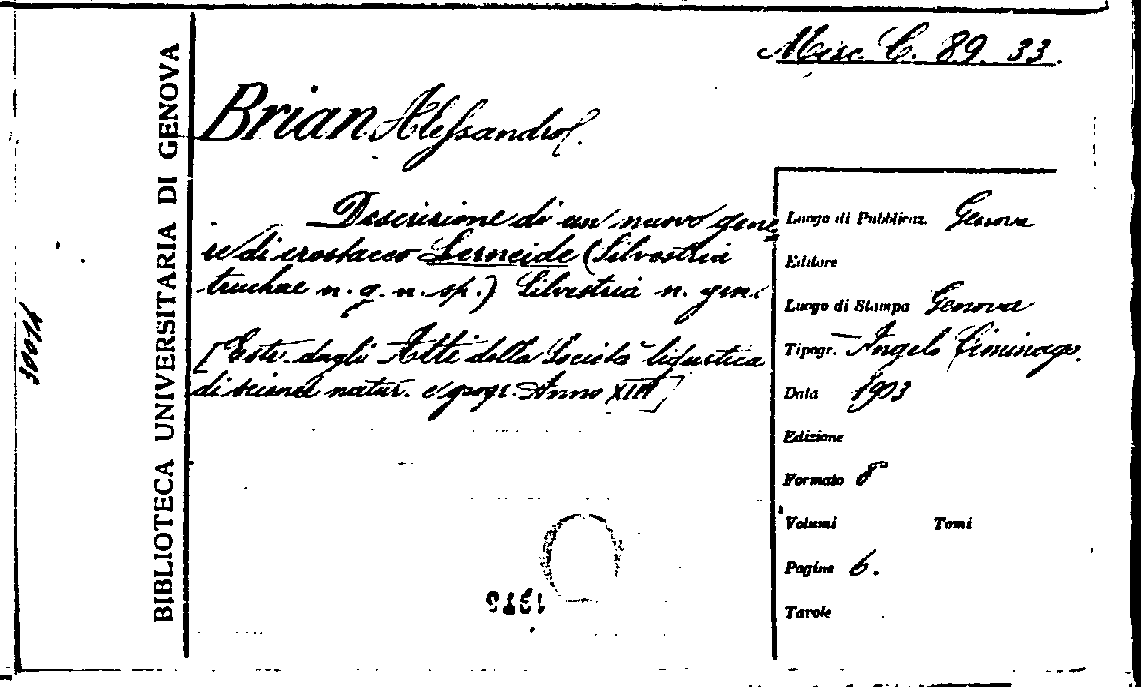 Misc. C. 89. 33.
BIBLIOTECA UNIVERSITARIA DI GENOVA
Brian Alessandro.
Descrizione di un nuovo gene
re di crostaceo Lerneide (Silvestria
truchae n. g. n. sp.) Silvestria n. gen.
[Estr. dagli Atti della Società ligustica
di scienze natur. e geogr. Anno XIII]
Luogo di Pubblicaz. Genova
Editore
Luogo di Stampa Genova
Tipogr. Angelo Ciminago.
Data 1903
Edizione
Formato 8°
Volumi Tomi
Pagine 6.
Tavole